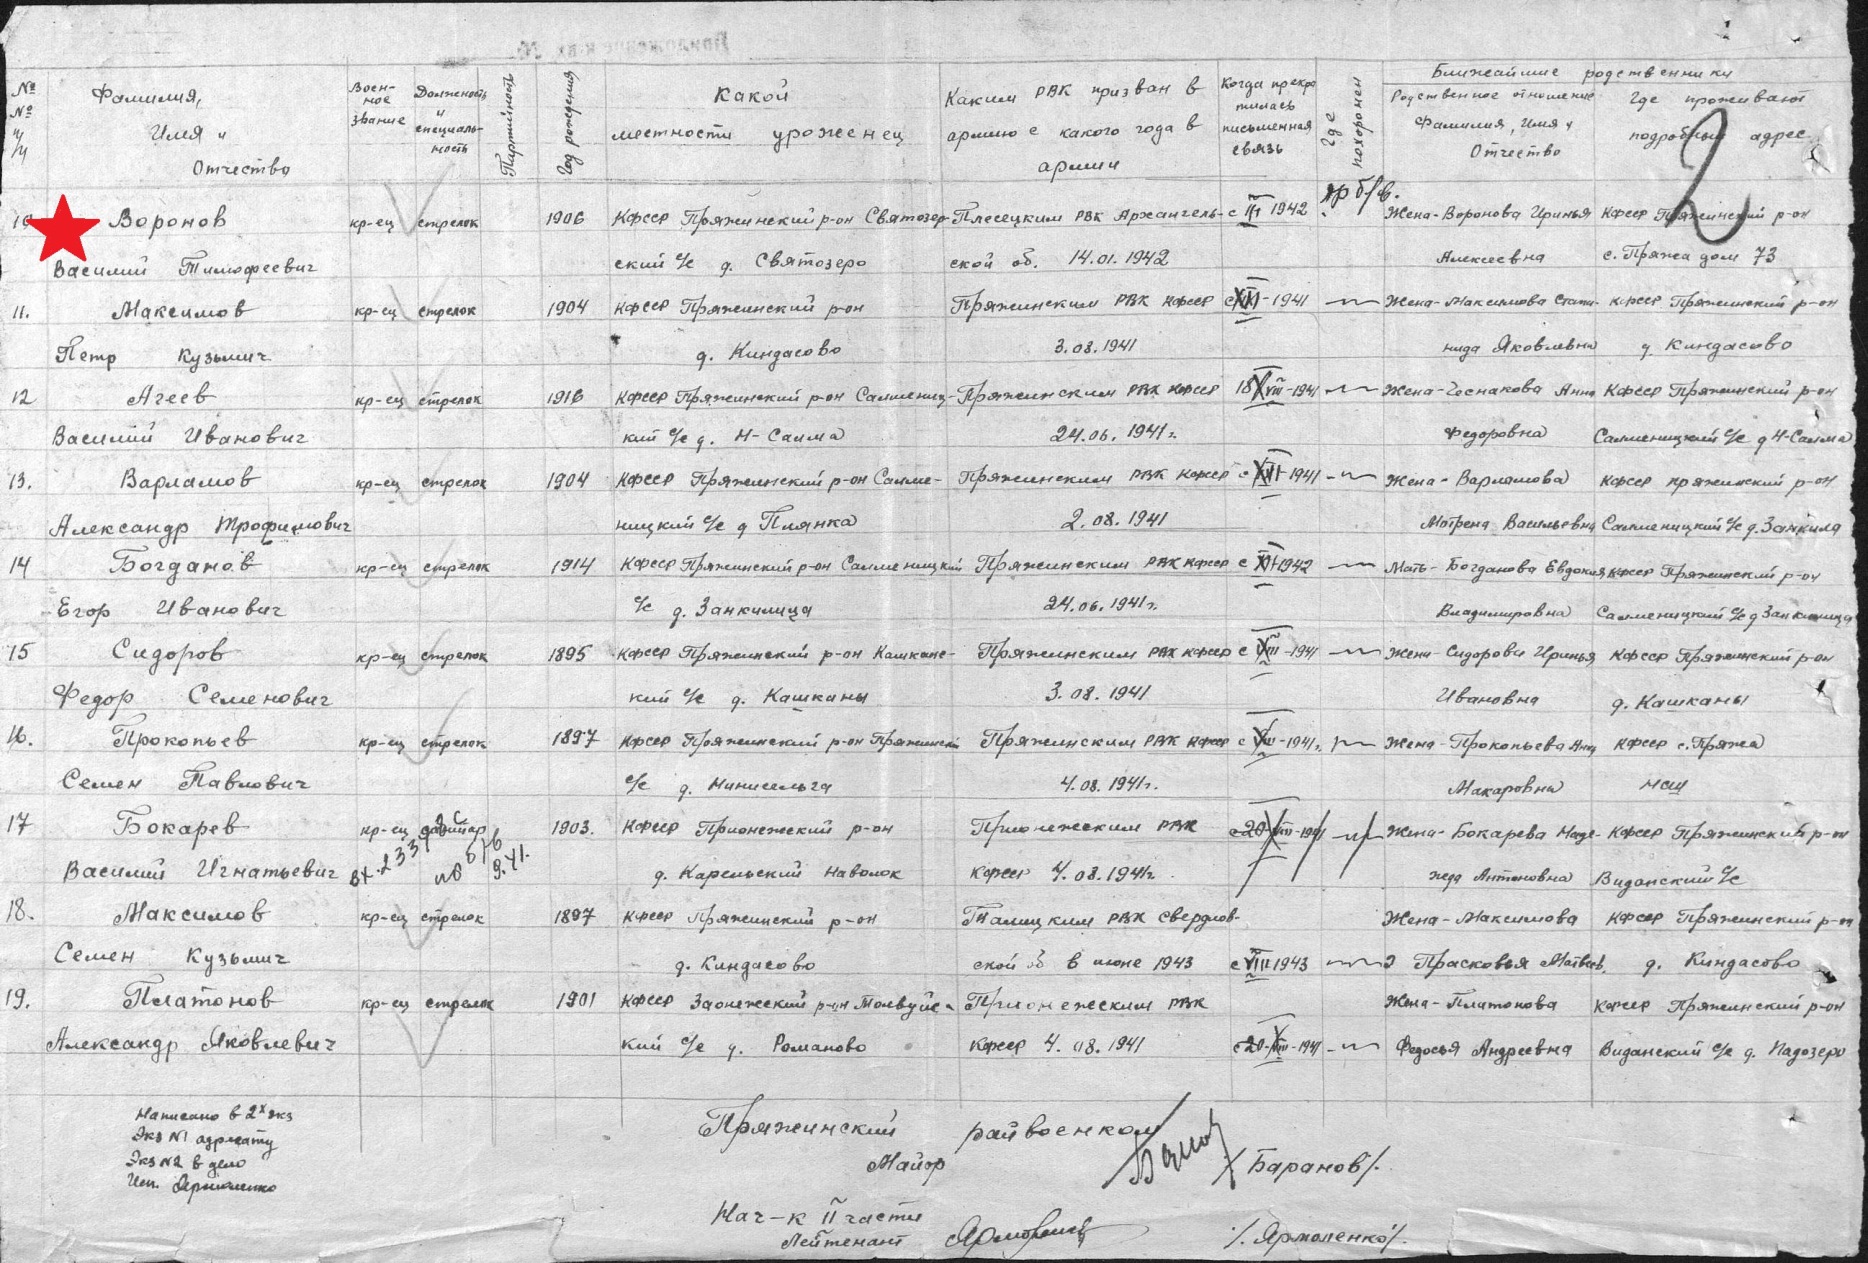 № № п/п
Фамилия, Имя и Отчество
Воен-ное звание
Должность и специаль-ность
Партийность
Год рождения
Какой местности уроженец
Каким РВК призван в армию с какого года в армии
Когда прекра тилась письменная связь
Где похоронен
Ближайшие родственники
Родственное отношение Фамилия, Имя и Отчество
Где проживают подробный адрес
2
пр б/в.
10 Воронов кр-ец стрелок 1906 КФССР Пряжинский р-он Святозер- Плесецким РВК Архангель- с III 1942 Жена-Воронова Иринья КФССР Пряжинский р-он
Василий Тимофеевич ский с/с д. Святозеро ской об. 14.01.1942 Алексеевна с. Пряжа дом 73
11. Максимов кр-ец стрелок 1904 КФССР Пряжинский р-он Пряжинским РВК КФССР 1941 Жена-Максимова Степа- КФССР Пряжинский р-он
Петр Кузьмич д. Киндасово 3.08.1941 нида Яковлевна д. Киндасово
12 Агеев кр-ец стрелок 1916 КФССР Пряжинский р-он Салмениц- Пряжинским РВК КФССР 18 VIII-1941 Жена-Чеснакова Анна КФССР Пряжинский р-он
Василий Иванович кий с/с д. Н-Салма 24.06.1941г. Федоровна Салменицкий с/с д Н-Салма
13. Варламов кр-ец стрелок 1904 КФССР Пряжинский р-он Салме- Пряжинским РВК КФССР с 1941 Жена-Варламова КФССР Пряжинский р-он
Александр Трофимович ницкий с/с д Плянка 2.08.1941 Мотрена Васильевна Салменицкий с/с д.
14 Богданов кр-ец стрелок 1914 КФССР Пряжинский р-он Салменицкий Пряжинским РВК КФССР с 1942 Мать-Богданова Евдокия КФССР Пряжинский р-он
Егор Иванович с/с д. Занкилица 24.06.1941г. Владимировна Салменицкий с/с д Занкилица
15 Сидоров кр-ец стрелок 1895 КФССР Пряжинский р-он Кашканс- Пряжинским РВК КФССР с 1941 Жена-Сидорова Иринья КФССР Пряжинский р-он
Федор Семенович кий с/с д. Кашканы 3.08.1941 Ивановна д. Кашканы
16. Прокопьев кр-ец стрелок 1897 КФССР Пряжинский р-он Пряжинский Пряжинским РВК КФССР с 1941г. Жена-Прокопьева Анна КФССР с. Пряжа
Семен Павлович с/с д. Нинисельга 4.08.1941г. Макаровна
17 Бокарев кр-ец 1903. КФССР Прионежский р-он Прионежским РВК с 20-VIII-1941 Жена-Бокарева Наде- КФССР Пряжинский р-он
Василий Игнатьевич вх. 9.41. д. Карельский Наволок КФССР 4.08.1941г. жда Антоновна Виданский с/с
18. Максимов кр-ец стрелок 1897 КФССР Пряжинский р-он Талицким РВК Свердлов- Жена-Максимова КФССР Пряжинский р-он
Семен Кузьмич д. Киндасово ской об в июне 1943 с VIII 1943 Прасковья Матвеев. д. Киндасово
19. Платонов кр-ец стрелок 1901 КФССР Заонежский р-он Толвуйс- Прионежским РВК Жена-Платонова КФССР Пряжинский р-он
Александр Яковлевич кий с/с д. Романово КФССР 4.08.1941 с 20-VIII-1941 Федосья Андреевна Виданский с/с д. Падозеро
Написано в 2х экз
Экз №1 адресату
Экз №2 в дело
Исп. Ярмоленко
Пряжинский райвоенком
Майор /Баранов/.
Нач-к II части
Лейтенант /.Ярмоленко/.